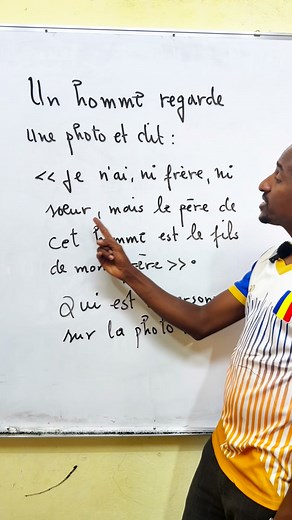 Un homme regarde
une photo et dit :
<< Je n'ai, ni frère, ni
sœur, mais le père de
cet homme est le fils
de mon père >>.
Qui est
sur la photo